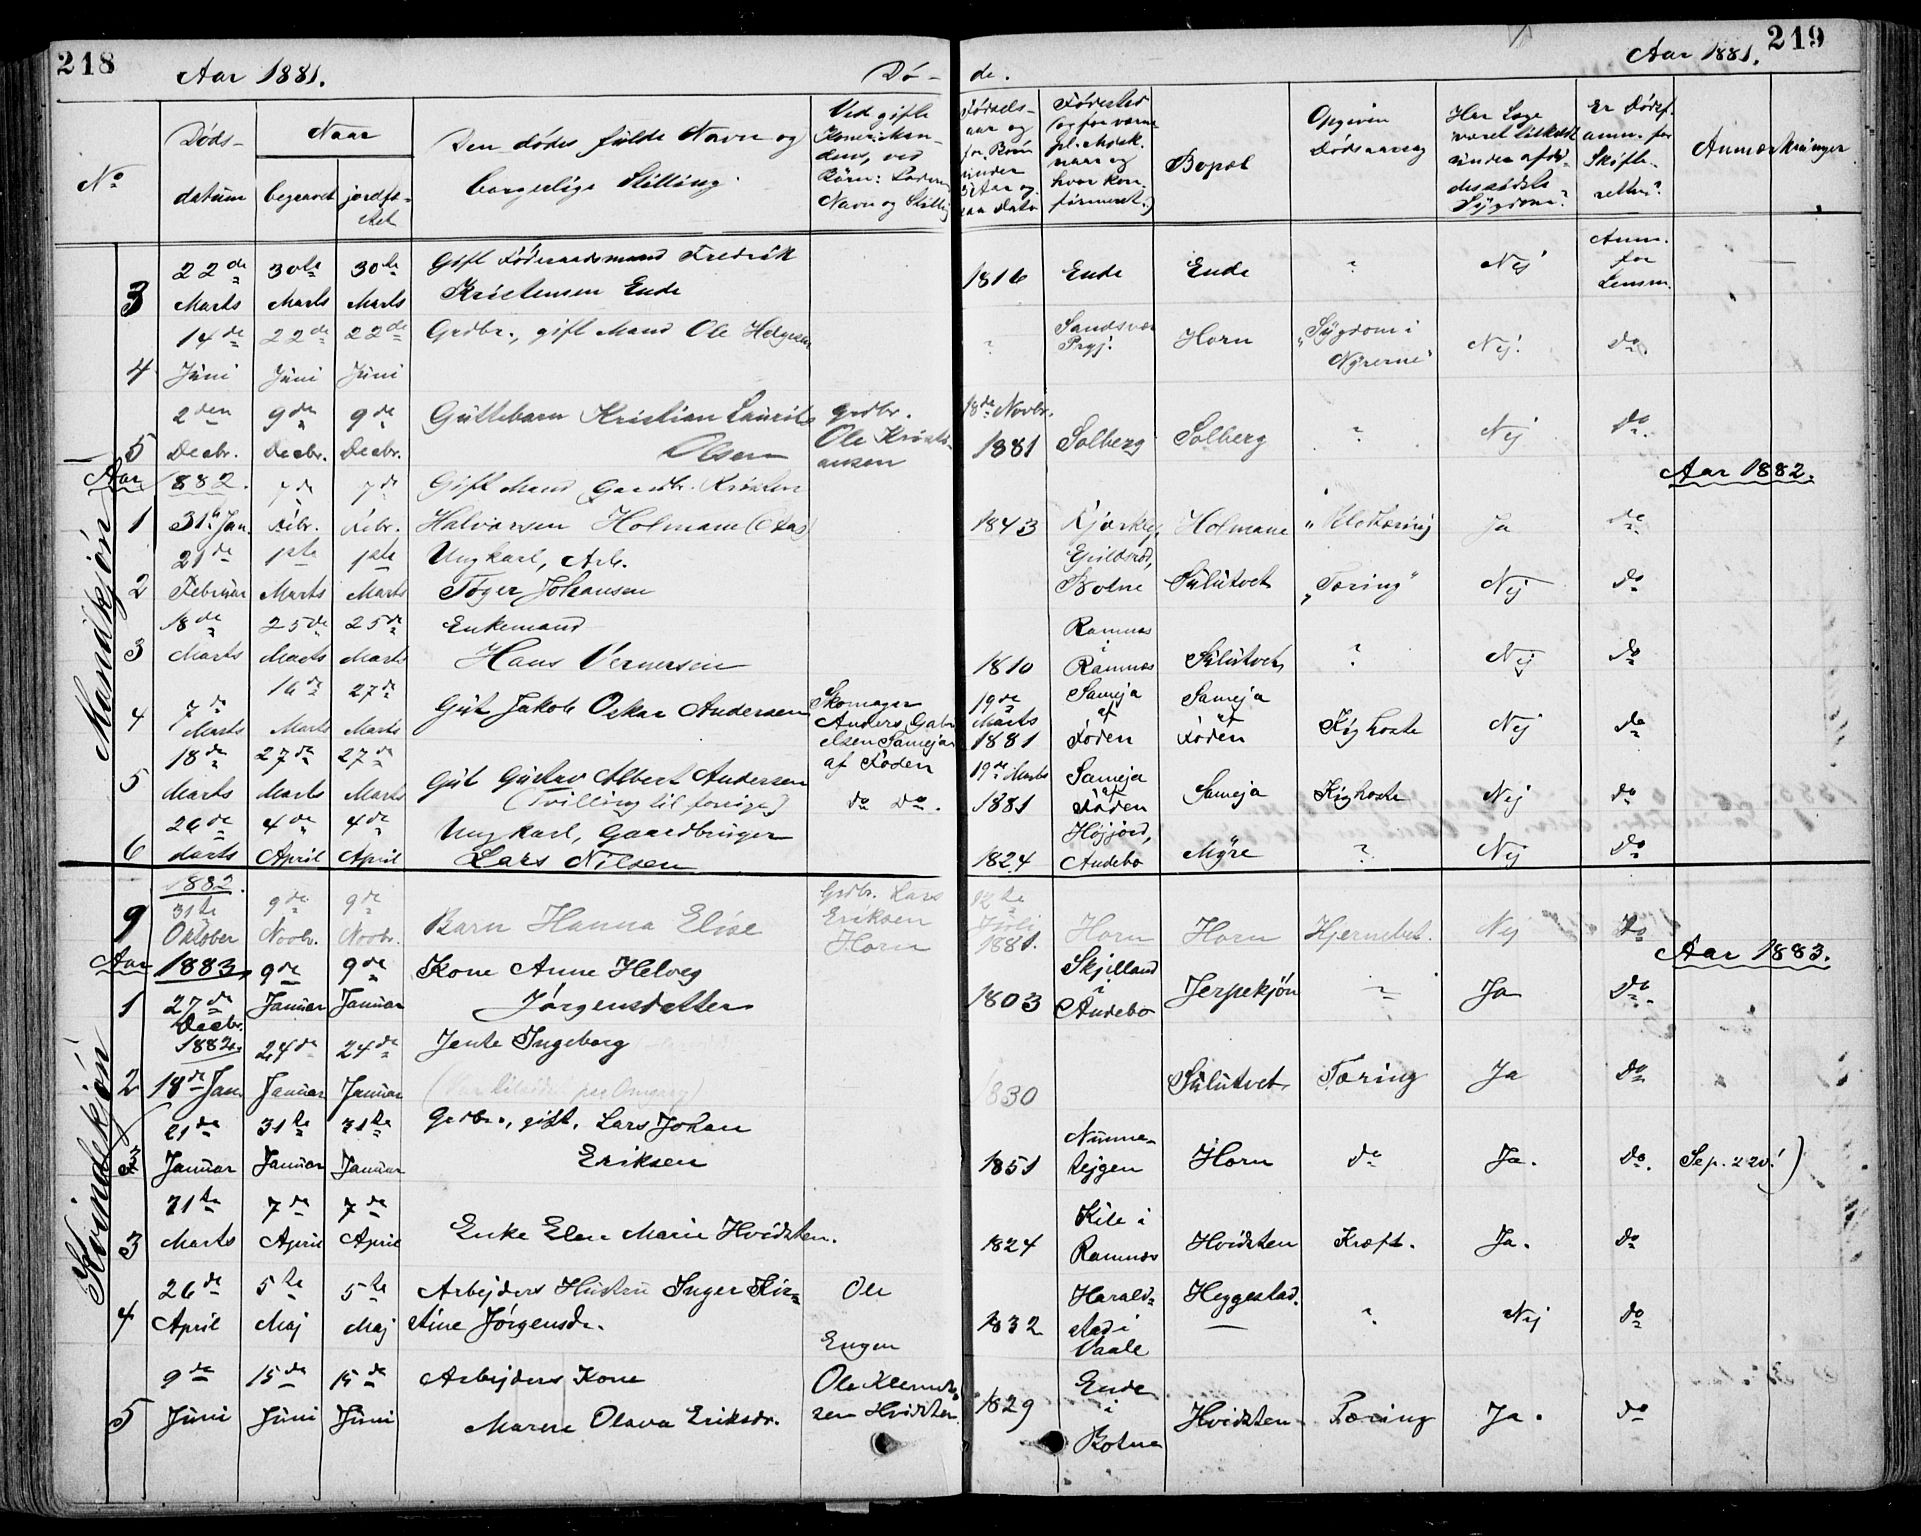 218
Aar 1881.
Dø-
No
Døds-
datum
Naar
begravet
jordfæ-
stet
Den dødes fulde Navn og
borgerlige Stilling
Ved gifte
Navn og Stilling
3
22de Marts
30te Marts
30te Marts
Gift Føderaadsmand Fredrik
Kristensen Ende
4
14de Juni
22de Juni
22de Juni
Grdbr., gift Mand Ole Helgesen
5
2den Decbr.
9de Decbr.
9de Decbr.
Guttebarn Kristian Laurits
Olsen
Grdbr.
Ole Kristi-
ansen
Mandkjøn
Aar 1882.
1
31te Jan.
7de Febr.
7de Febr.
Gift Mand Gaardbr. Kristen
Halvorsen Holmane
2
21de Februar
1ste Marts
1ste Marts
Ungkarl, Arb.
Toger Johansen
3
18de Marts
25de Marts
25de Marts
Enkemand
Hans Vernersen
4
7de Marts
16de Marts
27de Marts
Gut Jakob Oskar Andersen
Skomager
Anders Gabri-
elsen Sameja
af Foden
5
18de Marts
27de Marts
27de Marts
Gut Gustav Albert Andersen
(Tvilling til forrige)
do do.
6
26de Marts
4de April
4de April
Ungkarl, Gaardbruger
Lars Nilsen
Kvindekjøn
1882.
9
31te Oktober
9de Novbr.
9de Novbr.
Barn Hanna Elise
Grdbr. Lars
Eriksen
Horn
Aar 1883
1
27de Decbr. 1882.
9de Januar
9de Januar
Kone Anne Helvig
Jørgensdatter
2
18de Jan.
24de Januar
24de Januar
Jente Ingeborg
3
21de Januar
31te Januar
31te Januar
Grdbr., gift, Lars Johan
Eriksen
3
31te Marts
7de April
7de April
Enke Elen Marie Hvidsten.
4
26de April
5te Maj
5te Maj
Arbejders Hustru Inger Kir-
stine Jørgensdr.
Ole
Engen
5
9de Juni
15de Juni
15de Juni
Arbejders Kone
Maren Olava Eriksdr.
Ole Klemet-
sen Hvidsten
219
Aar 1881.
de.
Fødsels-
aar og
for Børn
under
Aar og-
saa Dato
Fødested
Bopæl
Opgiven
Dødsaarsag
Har Læge
været tilkaldt
under afdø-
des sidste
Sygdom?
Er Dødsf.
anm. for
Skifte-
retten?
Anmærkninger
1816
Ende
Ende
?
Nej
Anm.
for
Lensm.
?
Sandsvær
Prgj.
Horn
"Sygdom i
Nyrerne"
Nej.
Do.
18de Novbr.
1881
Solberg
Solberg
?
Nej
Do
Aar 1882.
1843
Holmane
Ja
Do
Botne
Sulutvet
"Tæring"
Nej
Do
1810
Ramnæs
i
Ramnæs
Sulutvet
?
Nej
Do
19de
Marts
1881
Sameja
af
Foden
Sameja
af
Foden
Kighoste
Nej
Do
19de Marts
1881
Sameja
af
Foden
Sameja
Kighoste
Nej
Do
1824
Høgjord,
Andebo
Myre
?
Nej
Do
Juli
1881.
Horn
Horn
Nej
Do
Aar 1883.
1803
Skjelland
i
Andebo
Jerpekjøn
?
Ja
Do.
1830
Sulutvet
Tæring
Ja
Do
1851
Numme-
stejgen
Horn
do
Ja.
Do.
Se p. 220!)
1824
Kile i
Ramnæs
Hvidsten
Kræft.
Ja.
Do
1832
Harald-
stad i
Vaale
Heggestad.
?
Nej
Do
1829
Ende
i
Botne
Hvidsten
Tæring
Ja.
Do